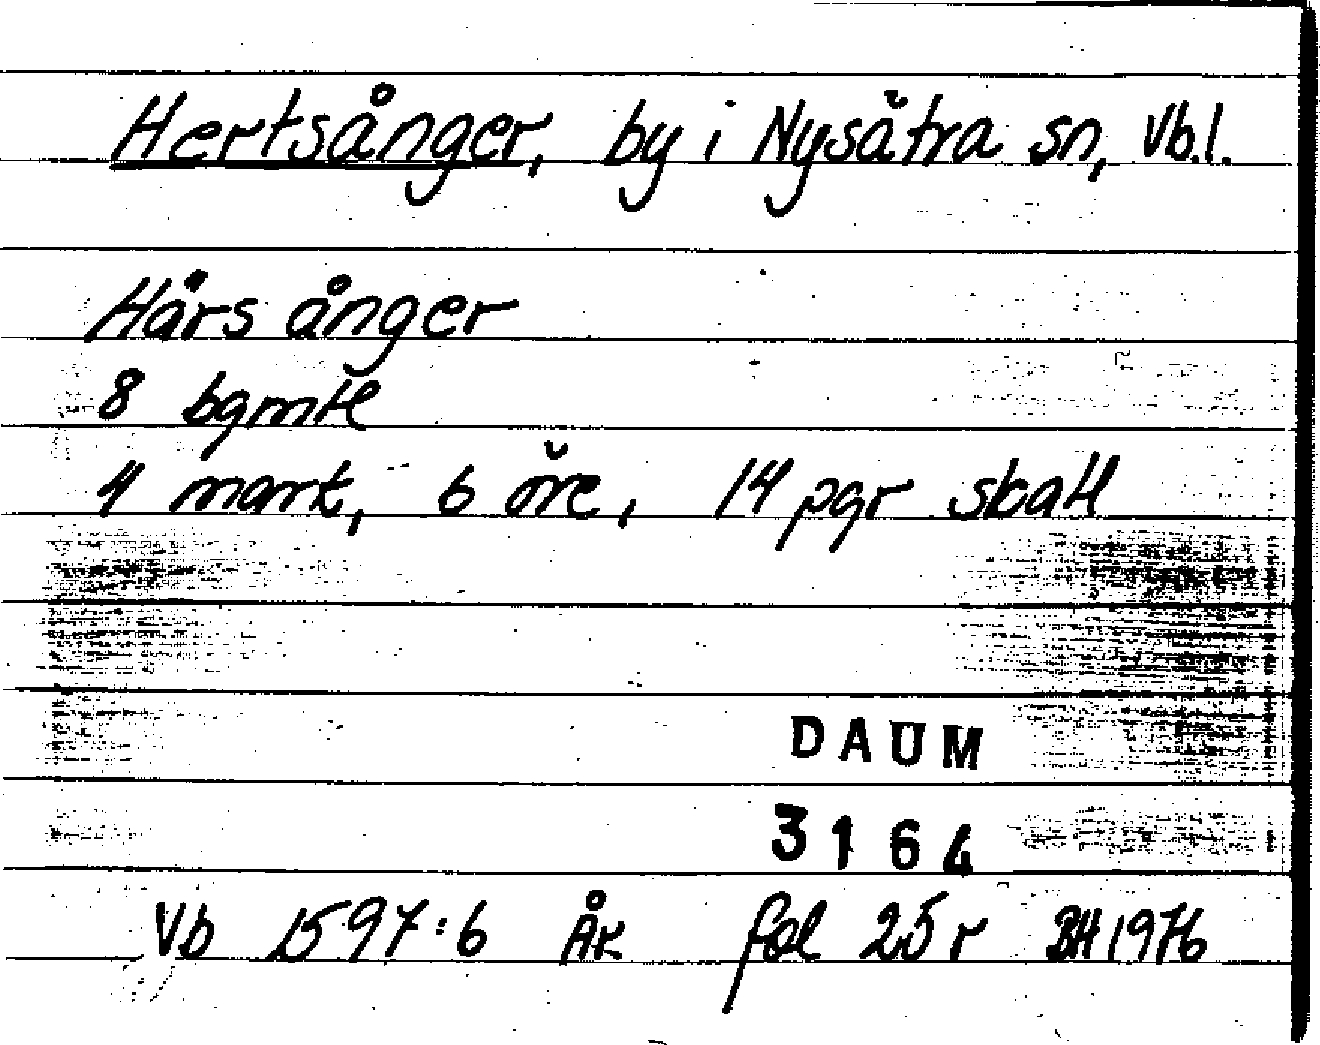 Hertsånger, by i Nysätra sn, Vb.l.
Hårs ånger
8 bgmtl
4 mark, 6 öre, 14 pgr skatt
DAUM
3164
Vb 1597:6 Åk fol 25 r BH 1976